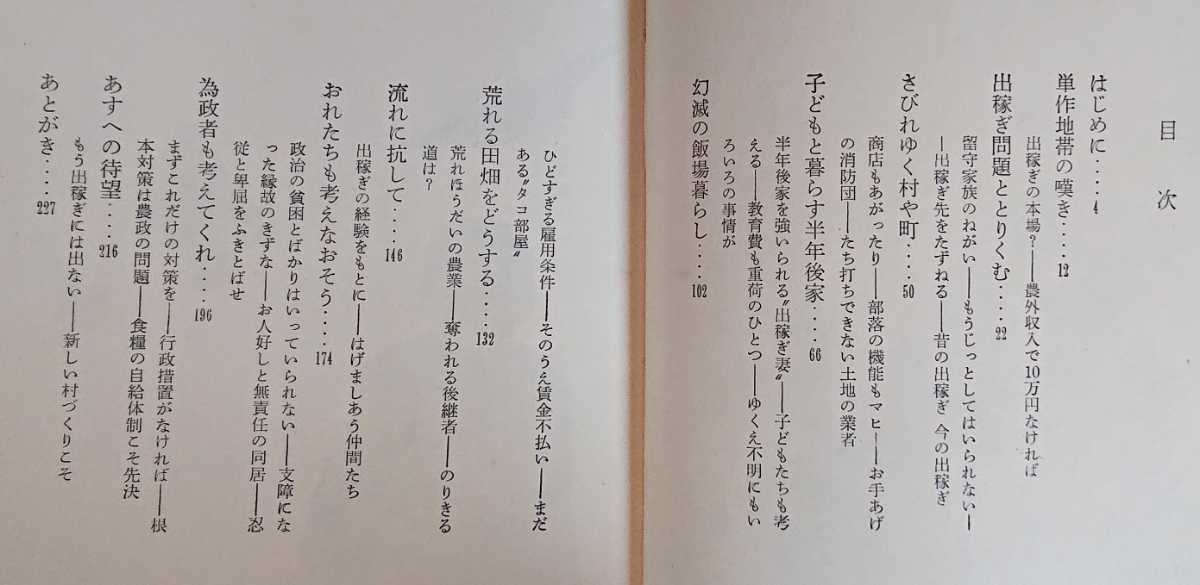 目次
はじめに‥‥4
単作地帯の嘆き‥‥12
出稼ぎの本場?――農外収入で10万円なければ
出稼ぎ問題ととりくむ‥‥22
留守家族のねがい――もうじっとしてはいられない―
―出稼ぎ先をたずねる――昔の出稼ぎ 今の出稼ぎ
さびれゆく村や町‥‥50
商店もあがったり――部落の機能もマヒ――お手あげ
の消防団――たち打ちできない土地の業者
子どもと暮らす半年後家‥‥66
半年後家を強いられる〝出稼ぎ妻〟――子どもたちも考
える――教育費も重荷のひとつ――ゆくえ不明にもい
ろいろの事情が
幻滅の飯場暮らし‥‥102
ひどすぎる雇用条件――そのうえ賃金不払い――まだ
ある〝タコ部屋〟
荒れる田畑をどうする‥‥132
荒れほうだいの農業――奪われる後継者――のりきる
道は?
流れに抗して‥‥146
出稼ぎの経験をもとに――はげましあう仲間たち
おれたちも考えなおそう‥‥174
政治の貧困とばかりはいっていられない――支障にな
った縁故のきずな――お人好しと無責任の同居――忍
従と卑屈をふきとばせ
為政者も考えてくれ‥‥196
まずこれだけの対策を――行政措置がなければ――根
本対策は農政の問題――食糧の自給体制こそ先決
あすへの待望‥‥216
もう出稼ぎには出ない――新しい村づくりこそ
あとがき‥‥227